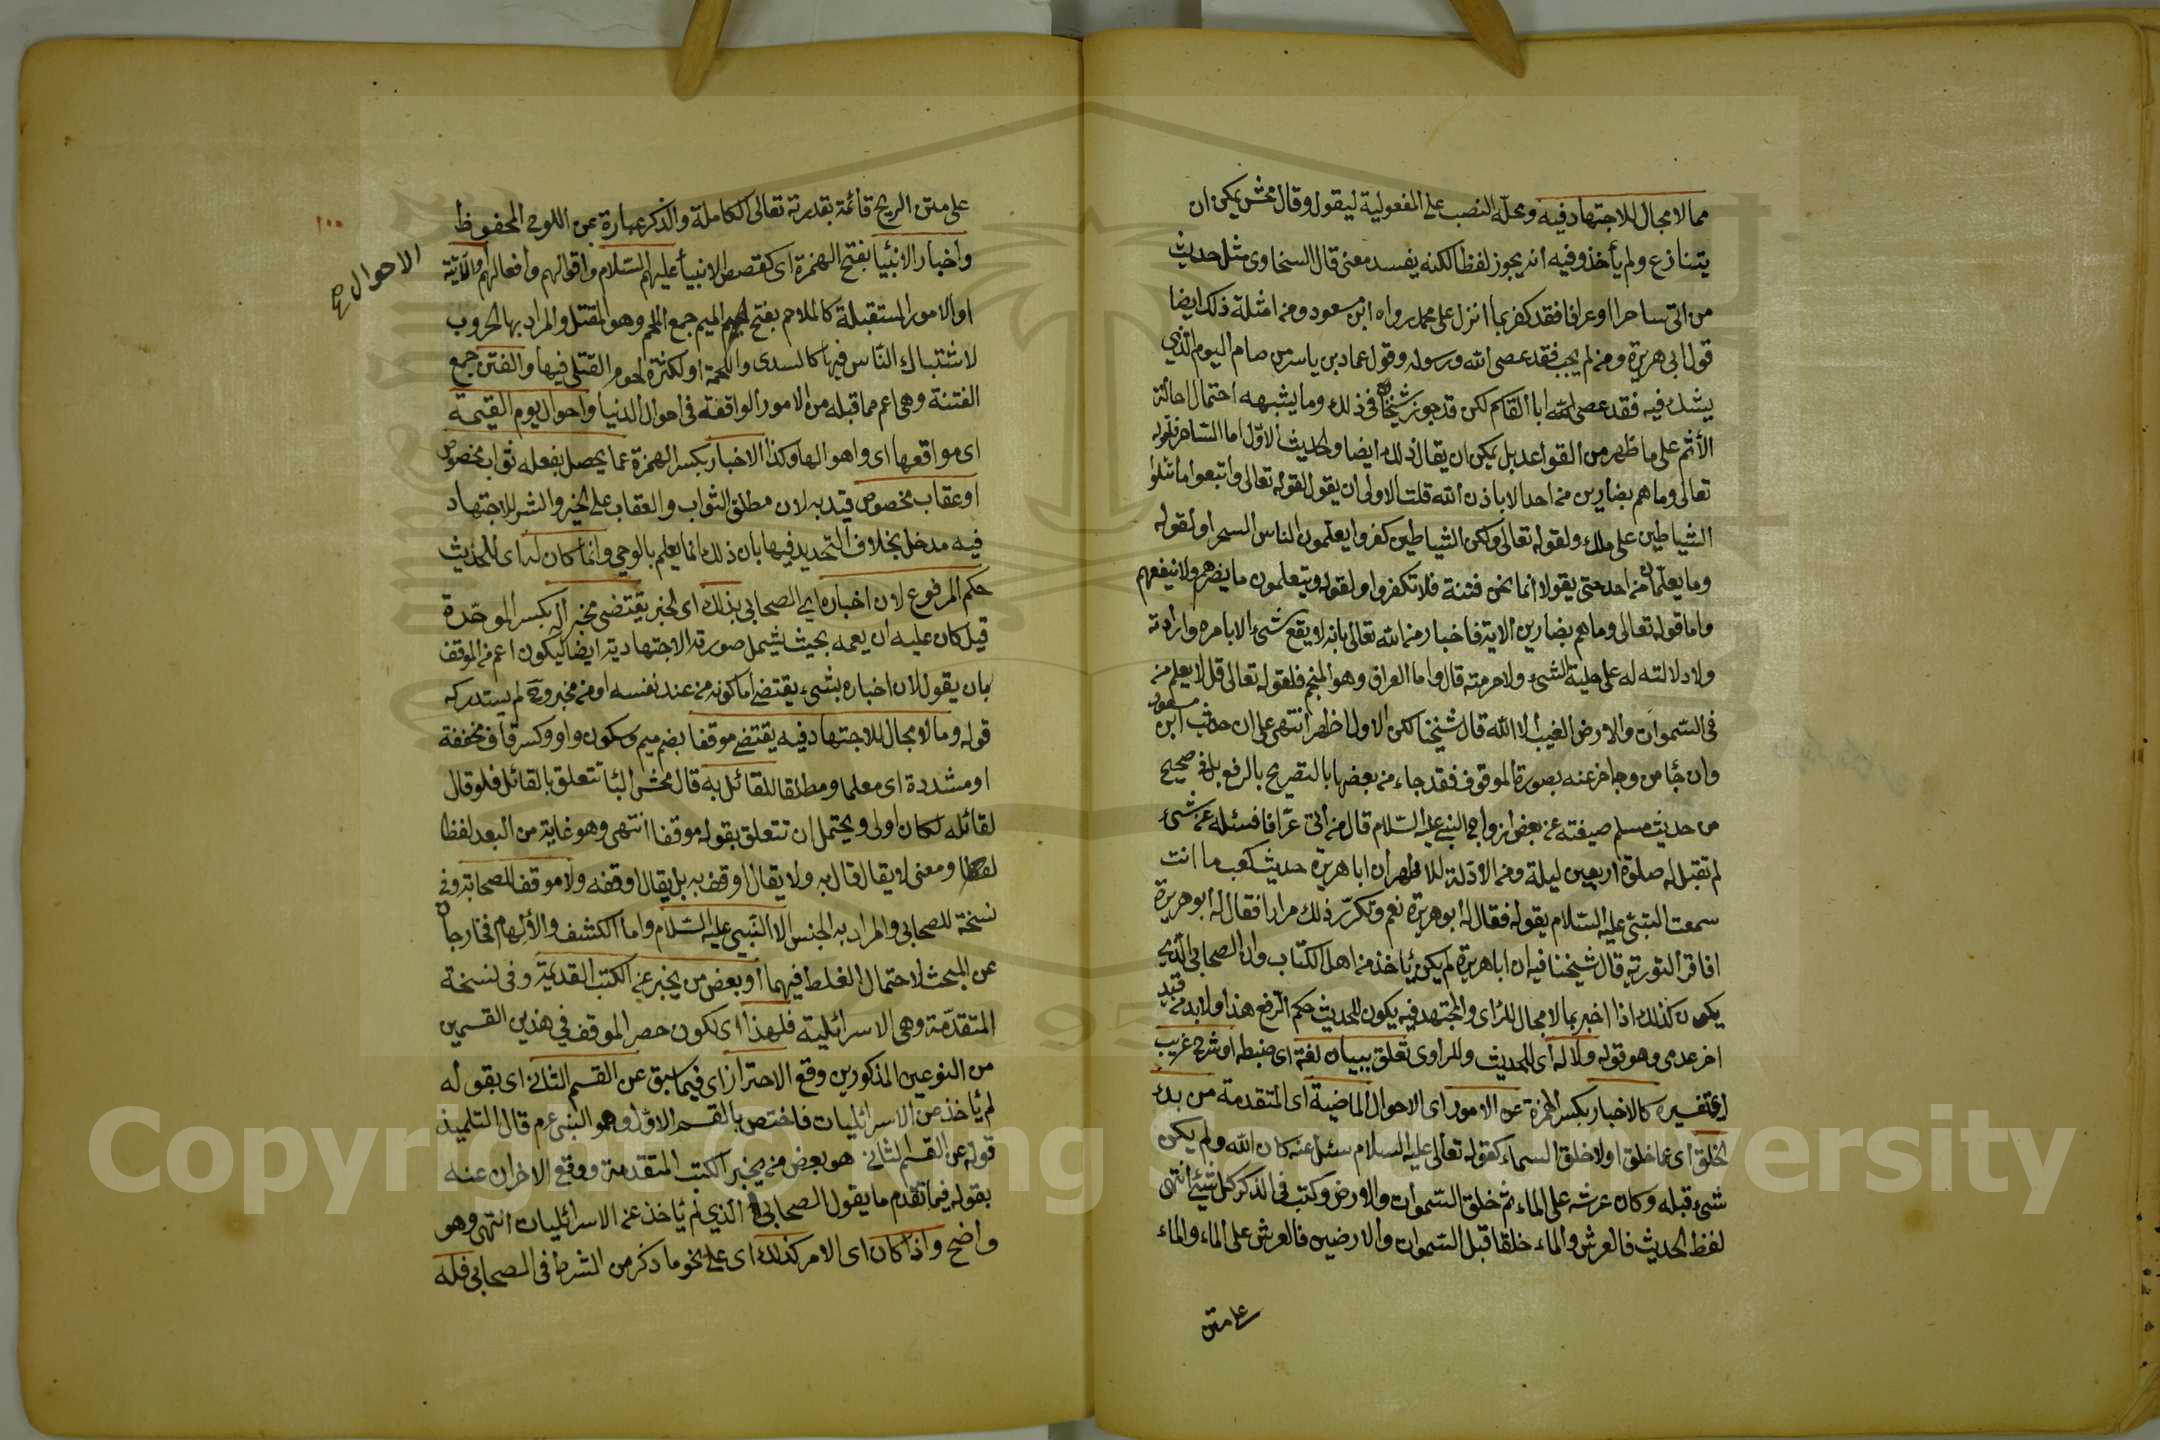 مما لا مجال للاجتهاد فيه ومحله النصب على المفعولية ليقول وقال محش يمكن ان
يتنازع ولم يأخذ وفيه انه يجوز لفظا لكنه يفسد معنى قال السخاوى مثل حديث
من اتى ساحرا او عرافا فقد كفر بما انزل على محمد رواه ابن مسعود ومن امثلة ذلك ايضا
قول ابى هريرة ومن لم يجب فقد عصى الله ورسوله وقول عماد بن ياسر من صام اليوم الذى
يشك فيه فقد عصى ابا القاسم لكن قد جوز شيخنا فى ذلك وما يشبهه احتمال احالة
الأثم على ما ظهر من القواعد بل يمكن ان يقال ذلك ايضا والحديث الاول اما الساحر فلقوله
تعالى وما هم بضارين من احد الا باذن الله قلت الاولى ان يقول لقوله تعالى واتبعوا ما تتلوا
الشياطين على ملك ولقوله تعالى ولكن الشياطين كفروا يعلمون الناس السحر او لقوله
وما يعلمان من احد حتى يقولا انما نحن فتنة فلا تكفروا ولقوله ويتعلمون ما يضرهم ولا ينفعهم
واما قوله تعالى وما هم بضارين الاية فاخبار من الله تعالى بانه لا يقع شئ الا بامره وارادته
ولا دلالته له على حلية الشئ ولا حرمته قال واما العراق وهو المنجم فلقوله تعالى قل لا يعلم من
فى السموات والارض الغيب الا الله قال شيخنا لكن الاول اظهر انتهى على ان حديث ابن مسعود
وان جاء من وجه اخر عنه بصورة الموقوف فقد جاء من بعضها بالتصريح بالرفع بل فى صحيح
من حديث مسلم صيفته عن بعض ازواج النبى عليه السلام قال من اتى عرافا فسئله عن شئ
لم تقبل له صلوة اربعين ليلة ومن الادلة للاظهر ان ابا هريرة حديث كعب ما انت
سمعت النبى عليه السلام يقوله فقال له ابو هريرة نعم وتكرر ذلك مرارا فقال له ابو هريرة
افاقرأ التورية قال شيخنا فيه ان ابا هريرة لم يكن يأخذ من اهل الكتاب وان الصحابى الذى
يكون كذلك اذا اخبر بما لا مجال للرأى والاجتهاد فيه يكون للحديث حكم الرفع هذا ولا بد من قيد
اخر عدمى وهو قوله ولا له اى للحديث وللراوى تعلق ببيان لغة اى ضبطه او شرح غريب
اى تفسيره كالاخبار بكسر الهمزة عن الامور اى الاحوال الماضية اى المتقدمة من بدء
الخلق اى عما خلق اولا خلق السماء كقوله تعالى عليه السلام سئل عنه كان الله ولم يكن
شئ قبله وكان عرشه على الماء ثم خلق السموات والارض وكتب فى الذكر كل شئ انتهى
لفظ الحديث فالعرش والماء خلقا قبل السموات والارضين فالعرش على الماء والماء
على متن
١٠٠
على متن الريح قائمة بقدرته تعالى الكاملة والذكر عبارة عن اللوح المحفوظ
واخبار الانبيا بفتح الهمزة اى كقصص الانبياء عليهم السلام واقوالهم وافعالهم والاتية
الاحوال صح
او الامور المستقبلة كالملاحم بفتح الميم جمع اللحم وهو المقتل والمراد بها الحروب
لاشتباك الناس فيها كالسدى واللحمة او لكثرة لحوم القتلى فيها والفتن جمع
الفتنة وهى اعم مما قبله من الامور الواقعة فى احوال الدنيا واحوال يوم القيمة
اى مواقعها اى واهوالها وكذا الاخبار بكسر الهمزة عما يحصل بفعله ثواب مخصوص
او عقاب مخصوص قيد به لان مطلق الثواب والعقاب على الخير والشر للاجتهاد
فيه مدخل بخلاف التحديد فيها بان ذلك انما يعلم بالوحى وانما كان له اى للحديث
حكم المرفوع لان اخباره اى الصحابى بذلك اى الخبر يقتضى مخبرا له بكسر الموحدة
قيل كان عليه ان يعمه بحيث يشمل صورة الاجتهادية ايضا ليكون اعم من الموقف
بان يقول لان اخباره بشئ يقتضى اما كونه من عند نفسه او من مخبر و لم يستدركه
قوله وما لا مجال للاجتهاد فيه يقتضى موقفا بضم ميم وسكون واو وكسر قاف مخففة
او مشددة اى معلما ومطلقا للقائل به قال محش البا تتعلق بالقائل فلو قال
لقائله لكان اولى ويحتمل ان تتعلق بقوله موقفا انتهى وهو غاية من البعد لفظا
ومعنى اذ يقال قال به ولا يقال اوقف به بل يقال اوقفه ولا موقف للصحابة وفى
نسخة للصحابى والمراد به الجنس الا النبى عليه السلام واما الكشف والألهام فخارجان
عن المبحث لاحتمال الغلط فيهما او بعض من يخبر عن الكتب القديمة وفى نسخة
المتقدمة وهى الاسرائيلية فلهذا اى لكون حصر الموقف فى هذين القسمين
من النوعين المذكورين وقع الاحتراز اى فيما سبق عن القسم الثانى اى بقوله
لم يأخذ من الاسرائليات فاختص بالقسم الاول وهو النبى عرم قال التلميذ
قوله عن القسم الثانى هو بعض من يخبر الكتب المتقدمة ووقع الاحتراز عنه
بقوله فيما تقدم ما يقول الصحابى الذى لم يأخذ عن الاسرائليات انتهى وهو
واضح واذا كان اى الامر كذلك اى على نحو ما ذكر من الشرط فى الصحابى فله
Copyright © King Saud University